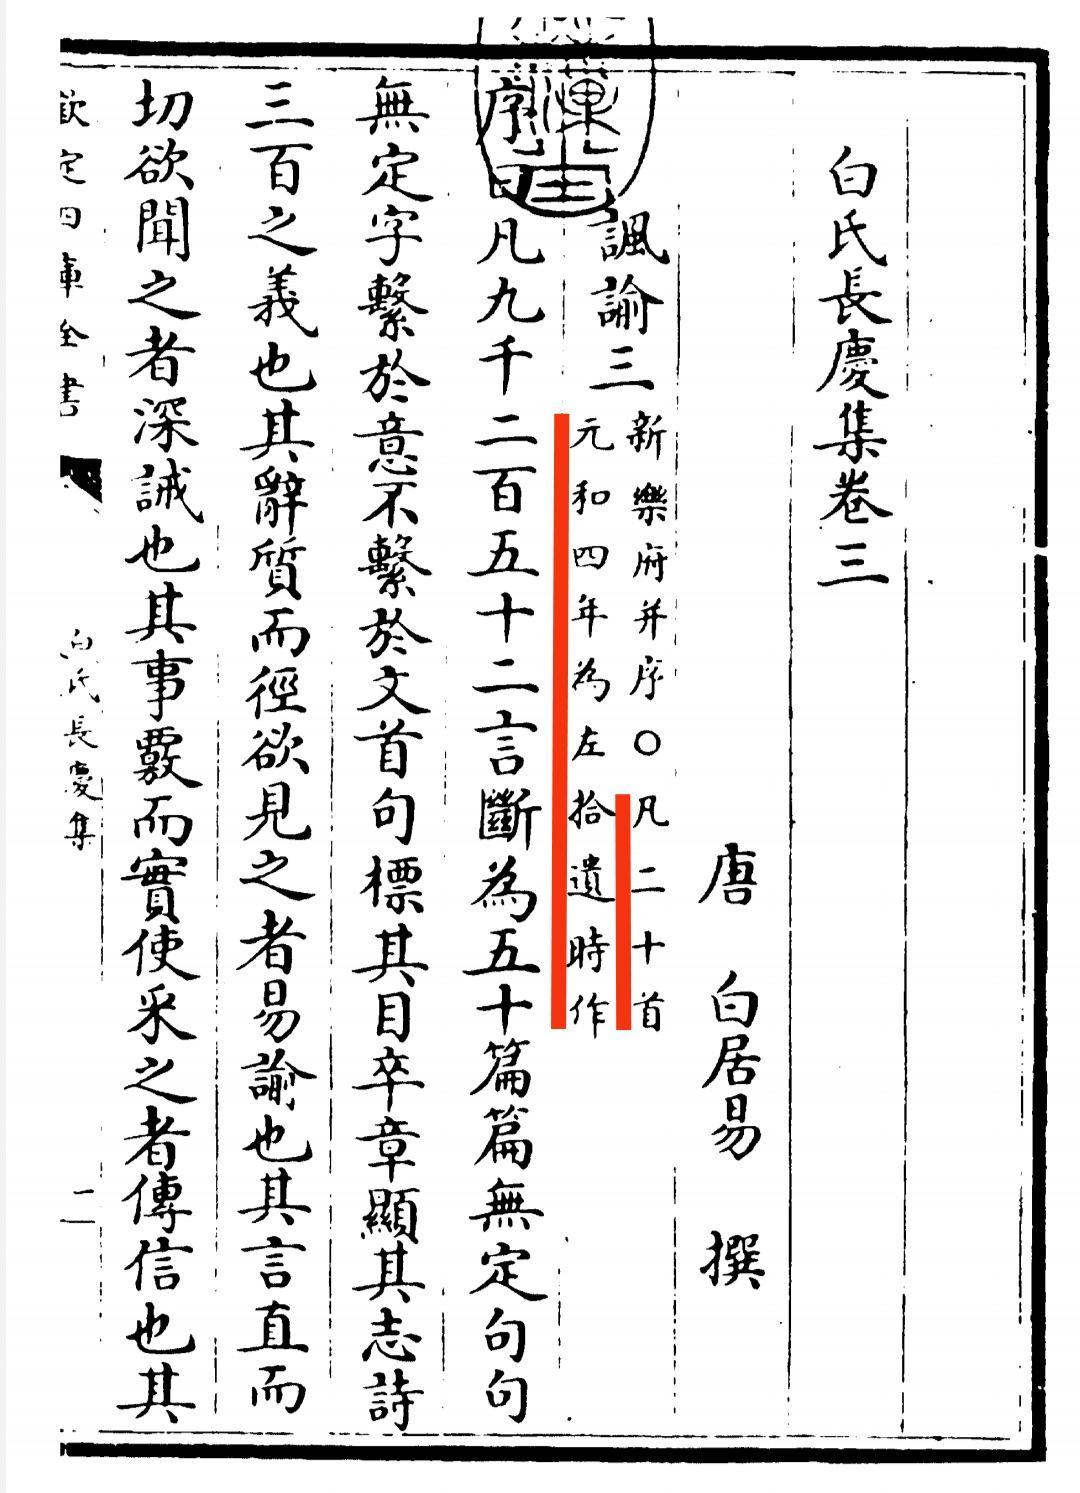 白氏長慶集卷三
唐 白居易 撰
諷諭三
新樂府并序○凡二十首
元和四年為左拾遺時作
序曰凡九千二百五十二言斷為五十篇篇無定句句
無定字繫於意不繫於文首句標其目卒章顯其志詩
三百之義也其辭質而徑欲見之者易諭也其言直而
切欲聞之者深誡也其事覈而實使采之者傳信也其
欽定四庫全書
白氏長慶集
二